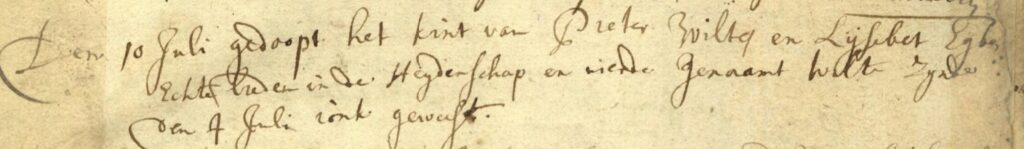 Den 10 Juli gedoopt het kint van Pieter Wiltes en Lijsebet Egbe
Echte luden in de Heydenschap en wierde Genaamt Wilte zynde
den 4 Juli ionk geweest.